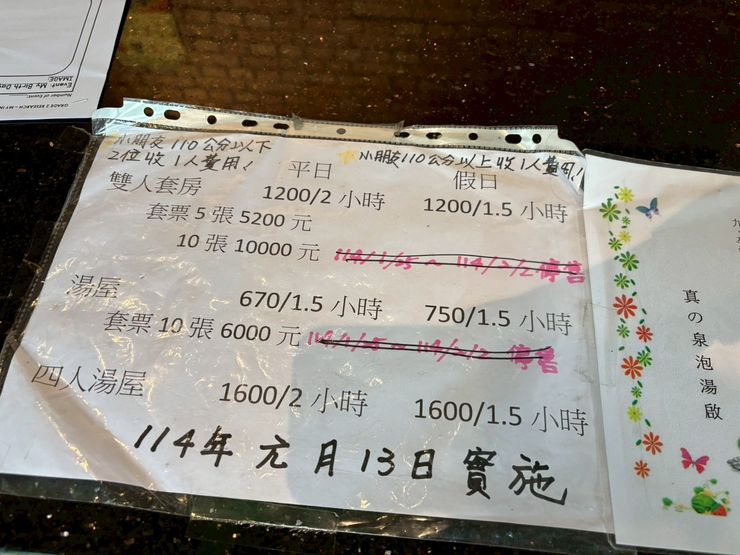 GRADE 2 RESEARCH - MY IN
Number of Event:
Event: My Birth Day
IMAGE:
小朋友110公分以下
2位收1人費用!
小朋友110公分以上收1人費用!
平日 假日
雙人套房 1200/2 小時 1200/1.5 小時
套票 5 張 5200 元
10 張 10000 元 114/1/25~114/2/2停售
湯屋 670/1.5 小時 750/1.5 小時
套票 10 張 6000 元 114/1/25~114/2/2 停售
四人湯屋 1600/2 小時 1600/1.5 小時
114年元月13日實施
真の泉泡湯啟